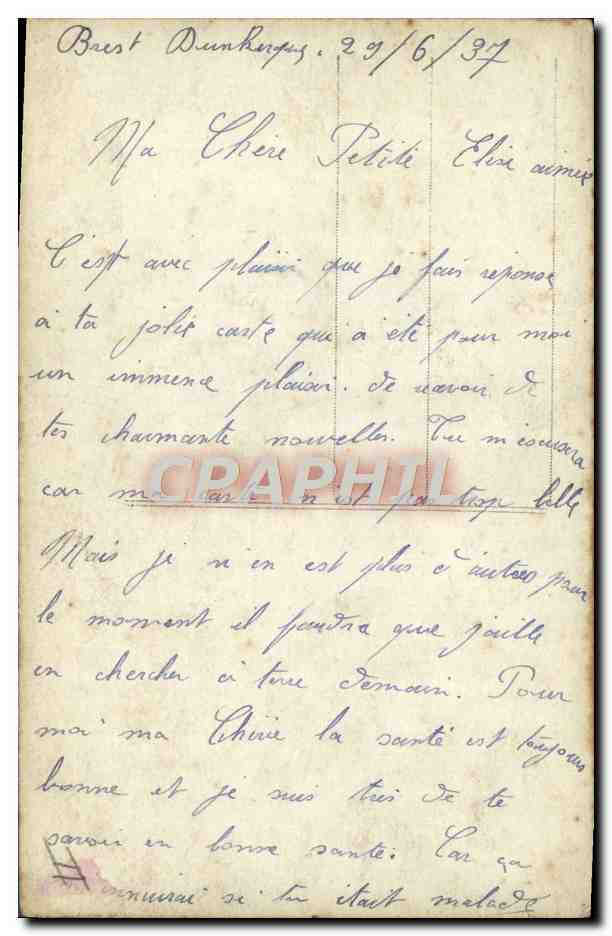 Brest Dunkerque. 29/6/37
Ma Chère Petite Elise aimée
C'est avec plaisir que je fais reponse
a ta jolie carte qui a été pour moi
un immence plaisir. de reavoir de
tes charmante nouvelles. Tu m'escusera
car ma carte n'est pas trop belle
CPARHIL
Mais je n'en est plus d'autres pour
le moment il faudra que j'aille
en chercher à terre demain. Pour
moi ma Chère la santé est toujours
bonne et je suis tres de te
savoir en bonne santé. Car ça
ennuirai si tu était malade
II